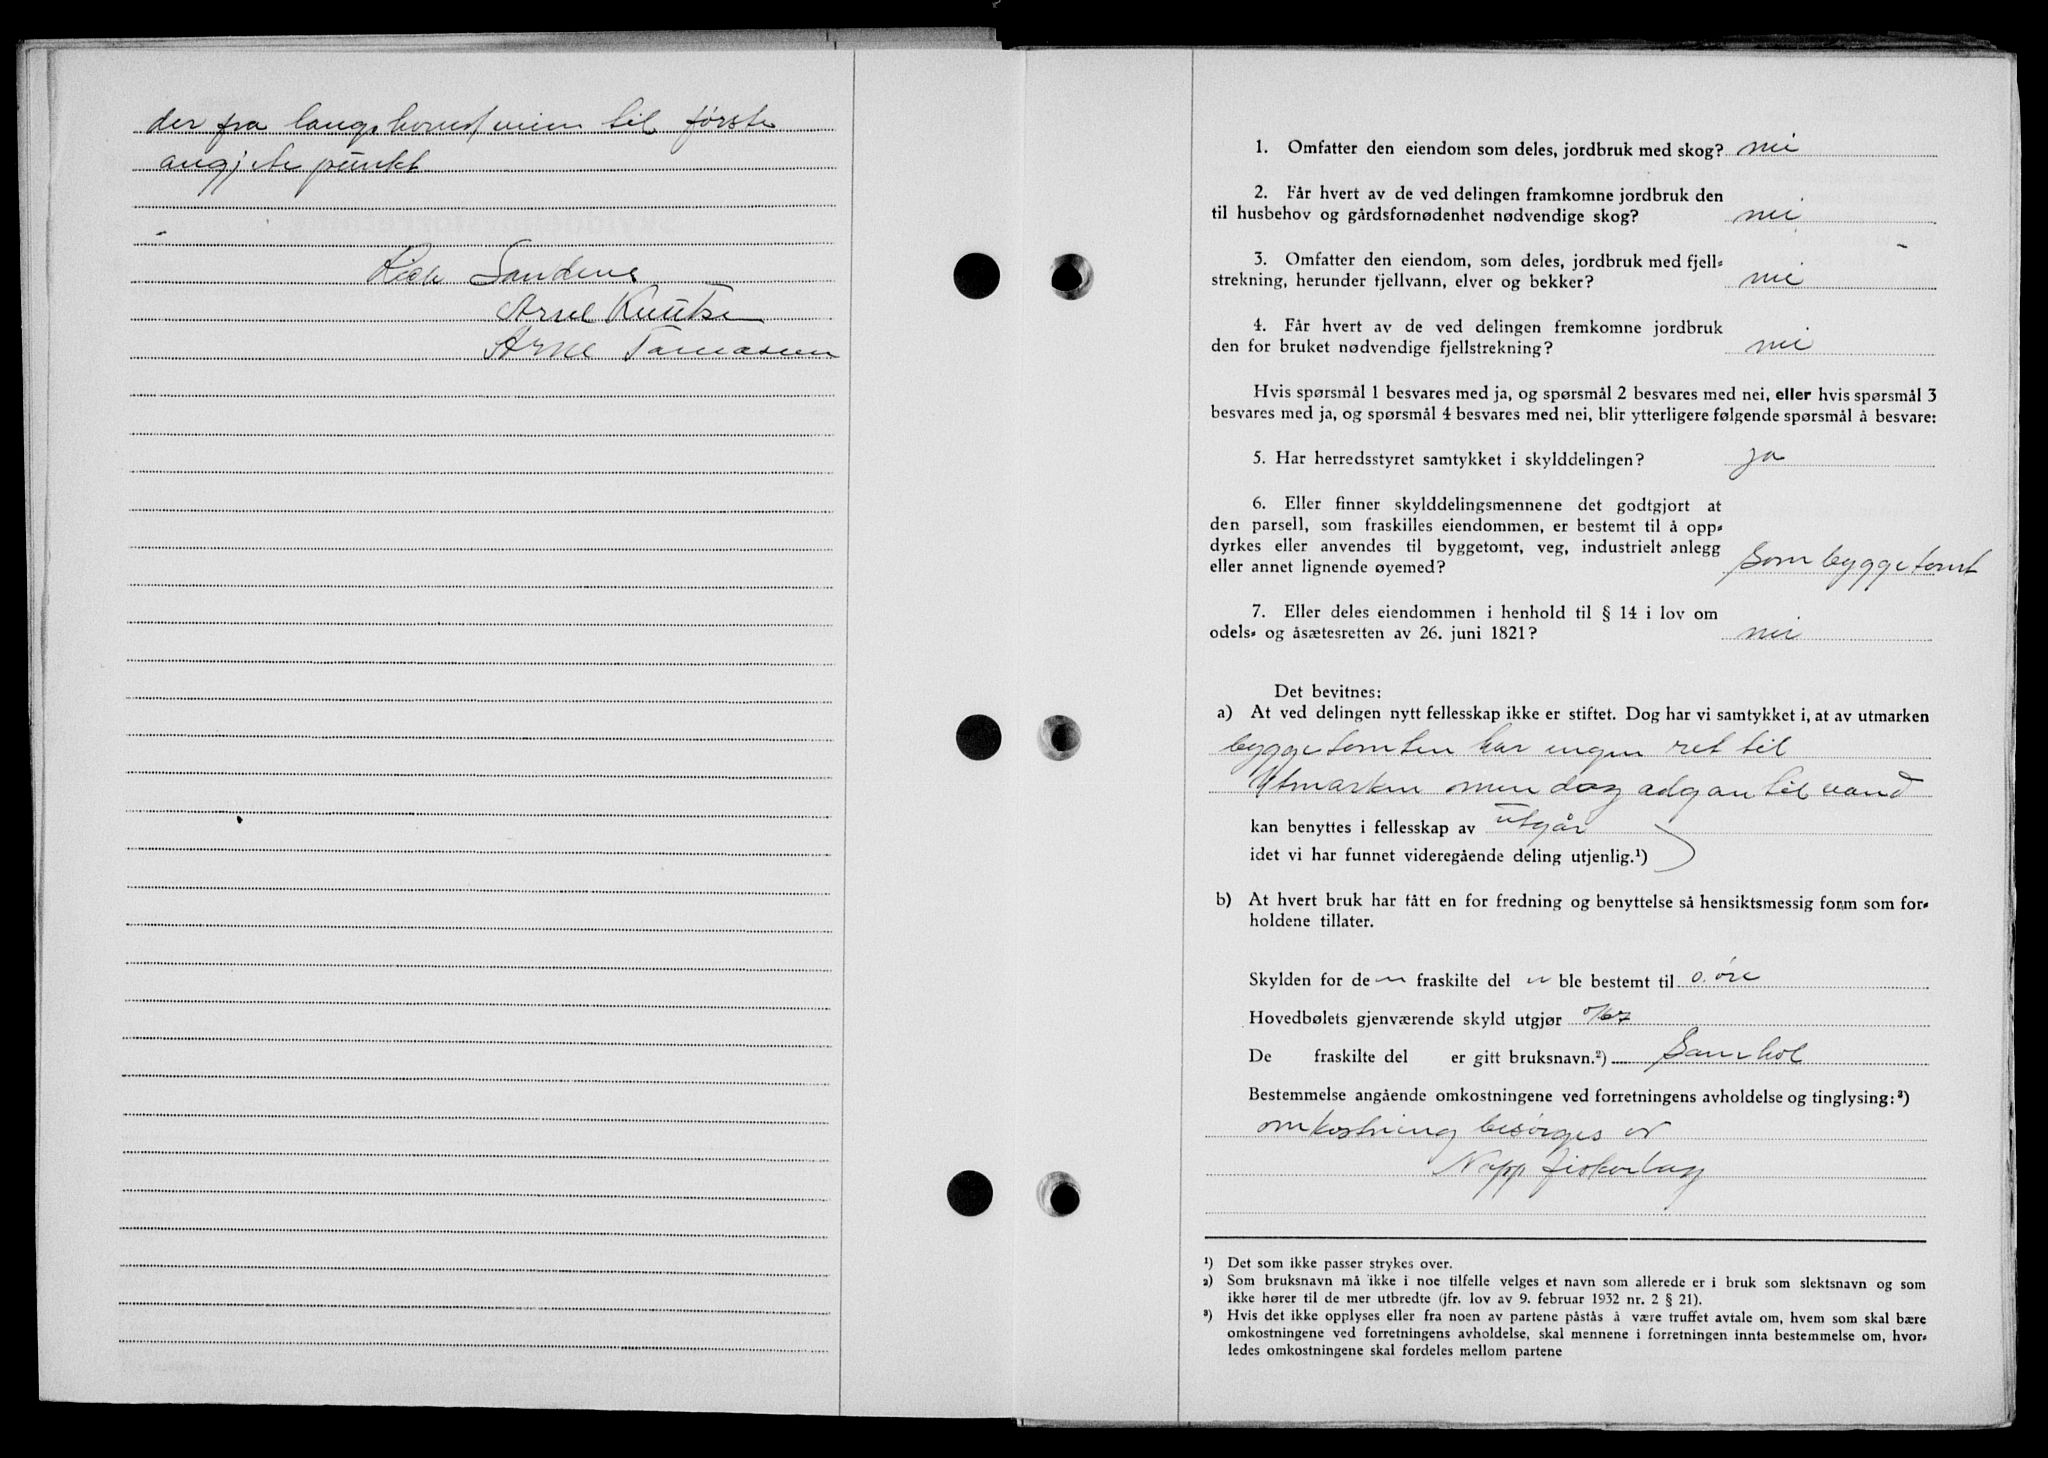 der fra langs hovedveien til første
angjete punkt
Sandene
Arne Knutsen
Arne Tomassen
1. Omfatter den eiendom som deles, jordbruk med skog? nei
2. Får hvert av de ved delingen framkomne jordbruk den
til husbehov og gårdsfornødenhet nødvendige skog? nei
3. Omfatter den eiendom, som deles, jordbruk med fjell-
strekning, herunder fjellvann, elver og bekker? nei
4. Får hvert av de ved delingen fremkomne jordbruk
den for bruket nødvendige fjellstrekning? nei
Hvis spørsmål 1 besvares med ja, og spørsmål 2 besvares med nei, eller hvis spørsmål 3
besvares med ja, og spørsmål 4 besvares med nei, blir ytterligere følgende spørsmål å besvare:
5. Har herredsstyret samtykket i skylddelingen? ja
6. Eller finner skylddelingsmennene det godtgjort at
den parsell, som fraskilles eiendommen, er bestemt til å opp-
dyrkes eller anvendes til byggetomt, veg, industrielt anlegg
eller annet lignende øyemed? Som byggetomt
7. Eller deles eiendommen i henhold til § 14 i lov om
odels- og åsætesretten av 26. juni 1821? nei
Det bevitnes:
a) At ved delingen nytt fellesskap ikke er stiftet. Dog har vi samtykket i, at av utmarken
byggetomten har ingen ret til
Utmarken men dog adgan til vand
kan benyttes i fellesskap av utgår
idet vi har funnet videregående deling utjenlig.¹)
b) At hvert bruk har fått en for fredning og benyttelse så hensiktsmessig form som for-
holdene tillater.
Skylden for de n fraskilte del er ble bestemt til 0. øre
Hovedbølets gjenværende skyld utgjør 0/67
De fraskilte del er gitt bruksnavn.²) Samhol
Bestemmelse angående omkostningene ved forretningens avholdelse og tinglysing:³)
omkostning besørges av
Napp fiskerlag
¹) Det som ikke passer strykes over.
²) Som bruksnavn må ikke i noe tilfelle velges et navn som allerede er i bruk som slektsnavn og som
ikke hører til de mer utbredte (jfr. lov av 9. februar 1932 nr. 2 § 21).
³) Hvis det ikke opplyses eller fra noen av partene påstås å være truffet avtale om, hvem som skal bære
omkostningene ved forretningens avholdelse, skal mennene i forretningen innta bestemmelse om, hvor-
ledes omkostningene skal fordeles mellom partene